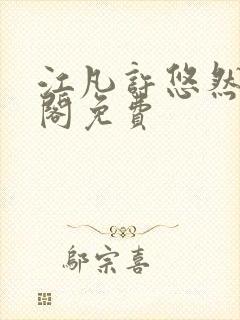 江凡許悠然
閣免費
鄔宗喜